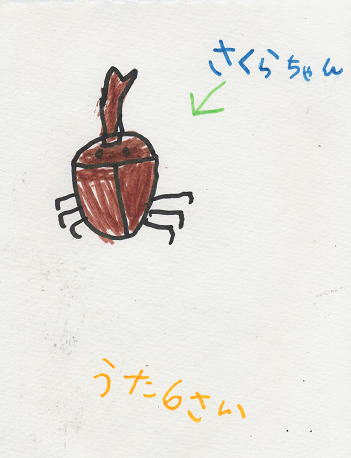 さくらちゃん
うた6さい